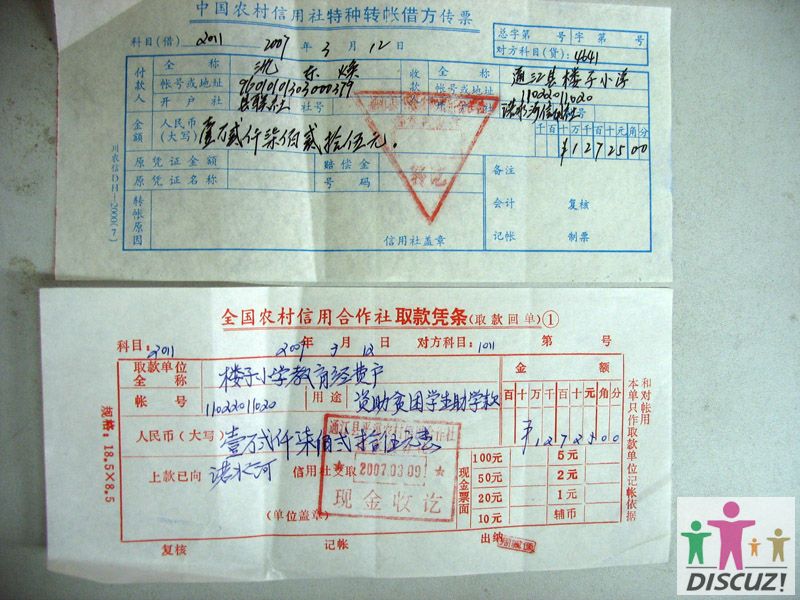 中国农村信用社特种转帐借方传票
科目(借) 2011 2007年 3月 12日
总字第 号 字第 号
对方科目(贷): 4641
付款人 全称 沈东焕
帐号或地址 9601010303000379
开户社 县联社 社号
收款人 全称 通江县楼子小学
帐号或地址 11022011020
诺水河信用社 号
金额 人民币(大写) 壹万贰仟柒佰贰拾伍元.
千百十万千百十元角分
¥1272500
原凭证金额 赔偿金
原凭证名称 号码
备注
转帐原因
转讫
会计 复核
信用社盖章
记帐 制票
川农信DH—2000(7)
全国农村信用合作社取款凭条(取款回单)①
科目: 2011 2007年 3月 12日 对方科目: 1011 第 号
取款单位全称 楼子小学教育经费户
金额
帐号 11022011020 用途 资助贫困学生助学款
百十万千百十元角分
人民币(大写) 壹万贰仟柒佰贰拾伍元整
¥1272500
上款已向 诺水河 信用社支取
2007.03.09
现金收讫
(单位盖章)
现金票面
100元 5元
50元 2元
20元 1元
10元 辅币
复核 记帐 出纳
规格: 18.5×8.5
本单只作取款单位记帐依据
和对帐用
DISCUZ!